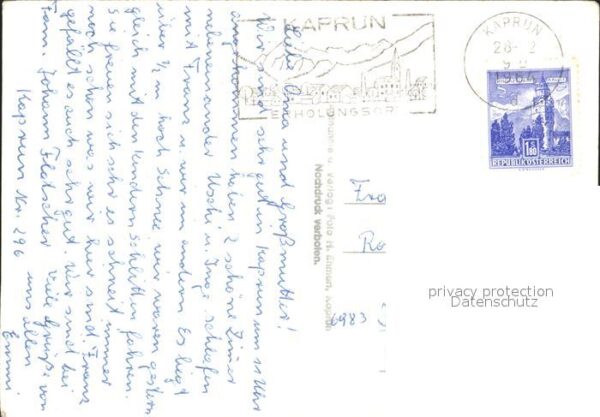 Liebe Oma und Großmutter!
Wir sind sehr gut in Kaprun um 11 Uhr
angekommen haben 2 schöne Zimer
nebeneinander Uschi u. Inge schlafen
mit Franz u. wir im andern. Es liegt
über ½ m hoch Schnee wir waren gestern
gleich mit den Kindern Schlitten fahren.
Sie freuen sich sehr es schneit immer
noch schön was wir hier sind. Franz
gefällt es auch sehr gut. Wir sind bei
Fam. Johann
Kaprun Nr. 296
Viele Grüße von
uns allen
Emmi
KAPRUN
ERHOLUNGSORT
KAPRUN
28-2
1964
S 1.80
REPUBLIK ÖSTERREICH
Nachdruck verboten.
Fra
Ro
6983
privacy protection
Datenschutz